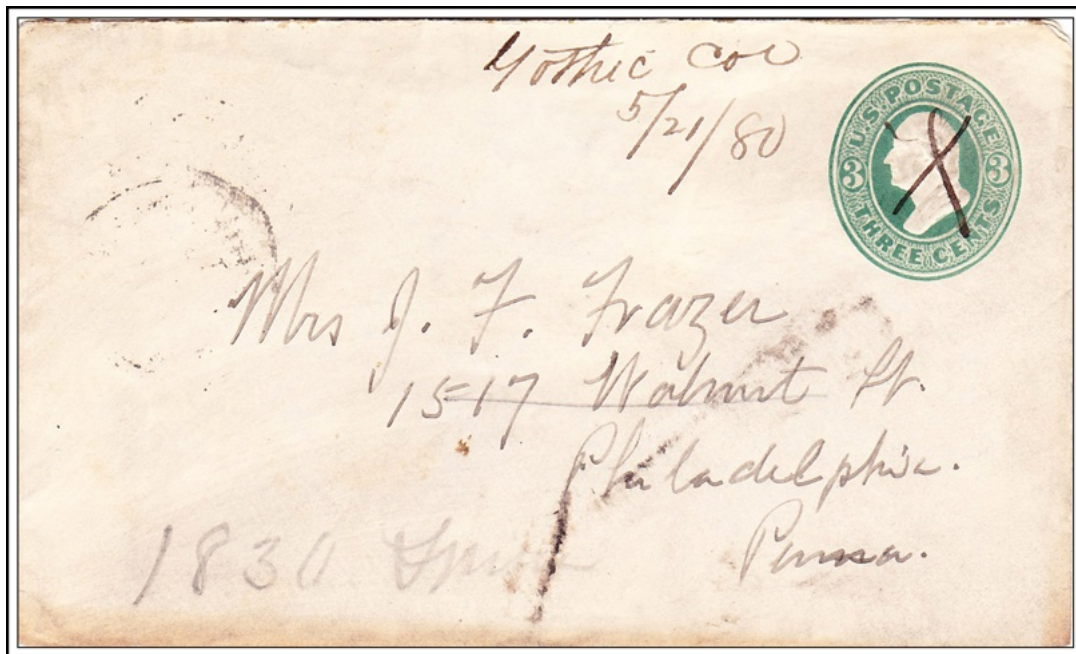 Gothic Col
5/21/80
U.S. POSTAGE
3 3
THREE CENTS
Mrs J. F. Frazer
1517 Walnut St.
Philadelphia.
Penna.
1830